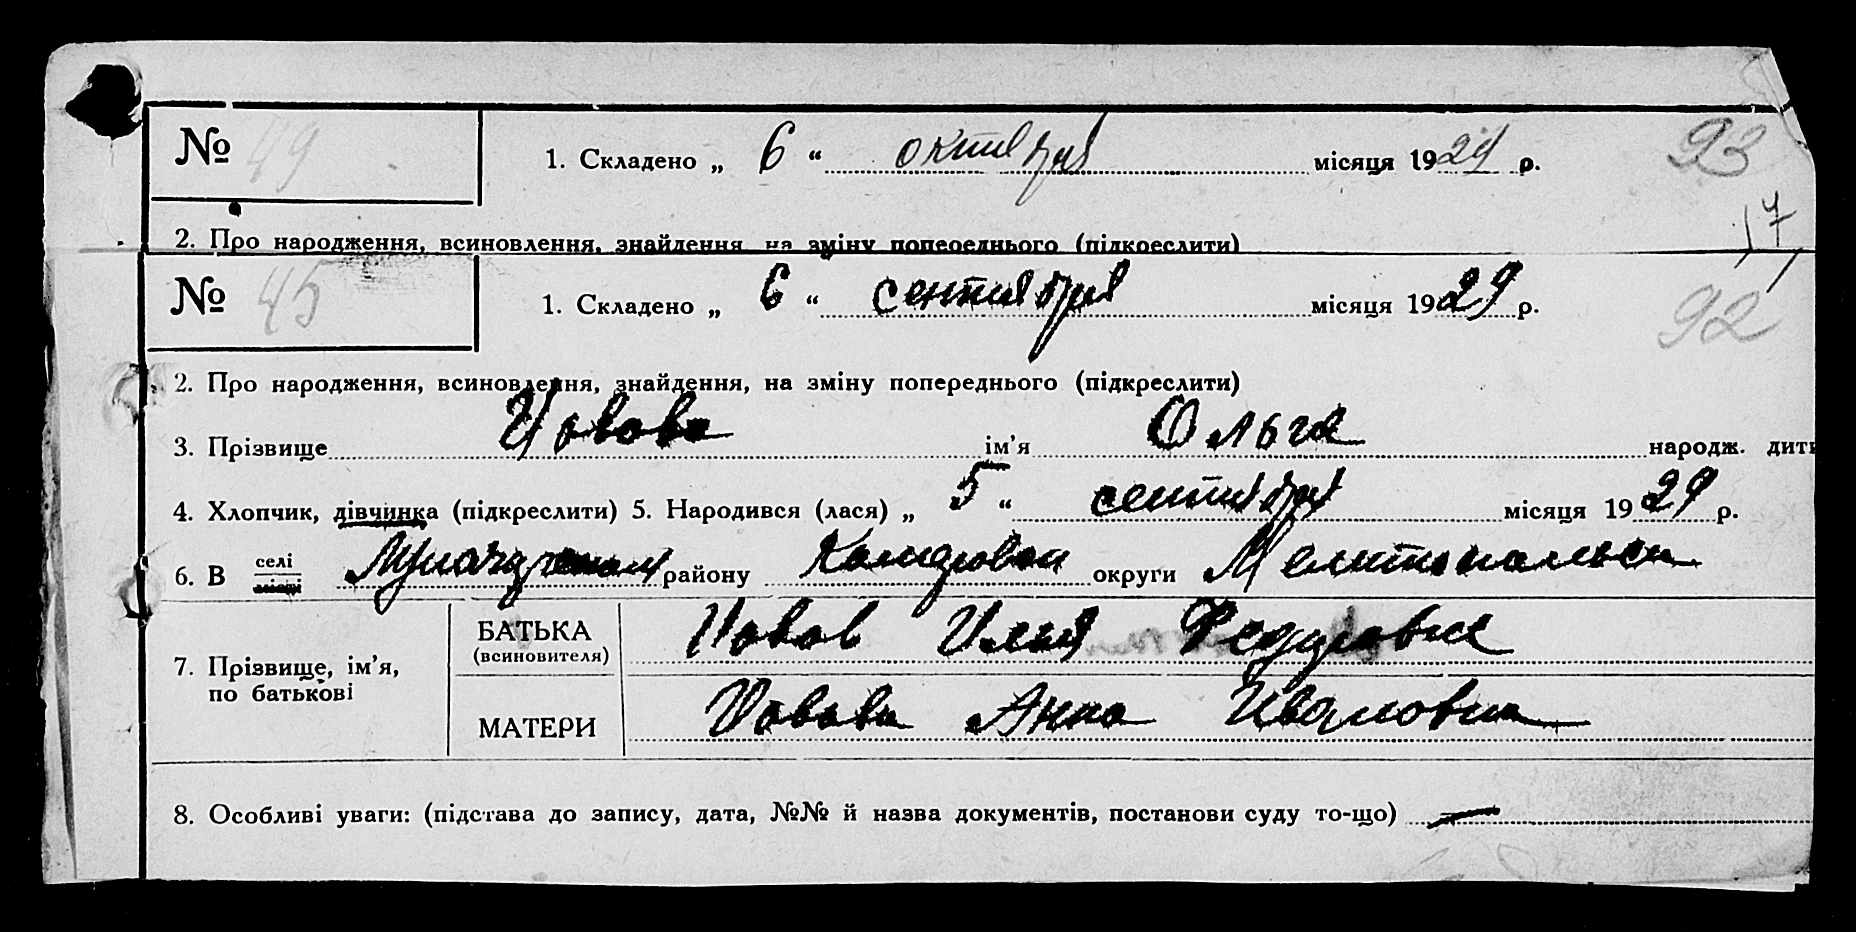 № 49
1. Складено „ 6 “ октября місяця 1929 р.
93
17
2. Про народження, всиновлення, знайдення, на зміну попереднього (підкреслити)
№ 45
1. Складено „ 6 “ сентября місяця 1929 р.
92
2. Про народження, всиновлення, знайдення, на зміну попереднього (підкреслити)
3. Прізвище ім’я Ольга народж. дит
4. Хлопчик, дівчинка (підкреслити) 5. Народився (лася) „ 5 “ сентября місяця 1929 р.
6. В селі місці району округи Мелитопольск
7. Прізвище, ім’я, по батькові
БАТЬКА (всиновителя) Илья Федорович
МАТЕРИ Анна Ивановна
8. Особливі уваги: (підстава до запису, дата, №№ й назва документів, постанови суду то-що) —